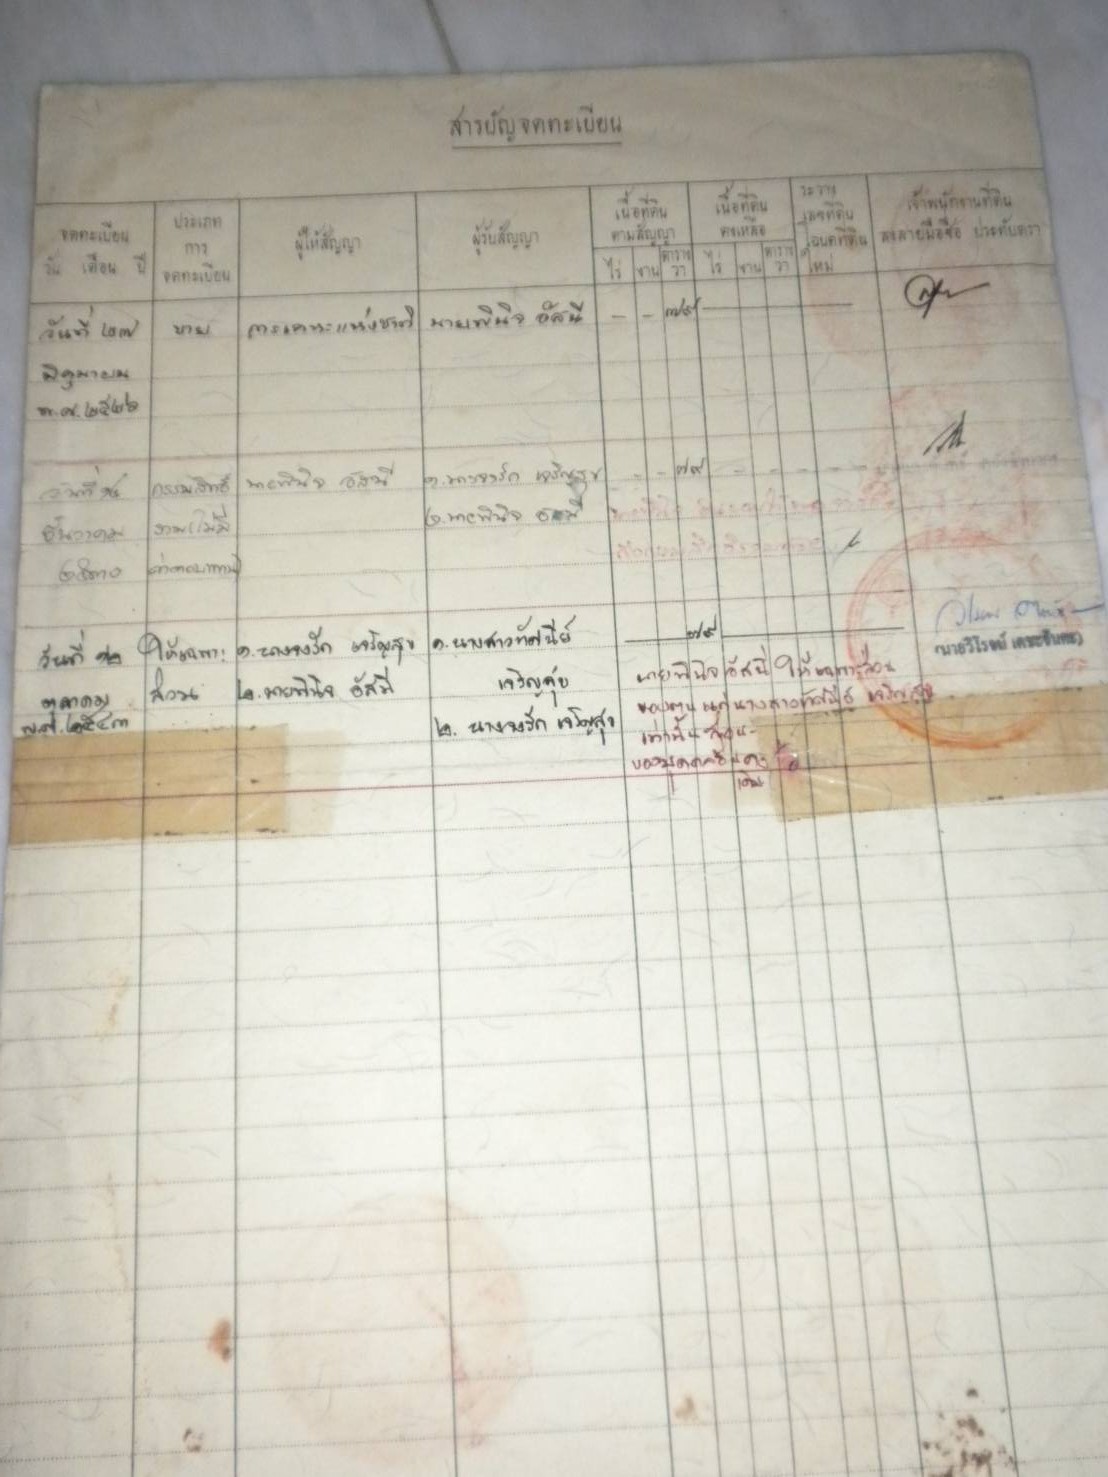 สารบัญจดทะเบียน
จดทะเบียน
วัน เดือน ปี
ประเภท
การ
จดทะเบียน
ผู้ให้สัญญา
ผู้รับสัญญา
เนื้อที่ดิน
ตามสัญญา
ไร่ งาน ตาราง
วา
เนื้อที่ดิน
คงเหลือ
ไร่ งาน ตาราง
วา
ระวาง
เลขที่ดิน
โฉนดที่ดิน
ใหม่
เจ้าพนักงานที่ดิน
ลงลายมือชื่อ ประทับตรา
วันที่ ๒๗ ขาย การเคหะแห่งชาติ นายพินิจ อัสนี - - ๗๙
มิถุนายน
พ.ศ. ๒๕๒๖
กรรมสิทธิ์ นายพินิจ อัสนี ๑. นางจงรัก เจริญสุข - - ๗๙ - - - - -
ธันวาคม รวมไม่มี ๒. นายพินิจ อัสนี
๒๕๓๐ ค่าตอบแทน
วันที่ ๑๒ ให้เฉพาะ ๑. นางจงรัก เจริญสุข ๑. นางสาวทัศนีย์ ๗๙
ตุลาคม ส่วน ๒. นายพินิจ อัสนี เจริญสุข
พ.ศ. ๒๕๔๓ ๒. นางจงรัก เจริญสุข
นายพินิจ อัสนี ให้เฉพาะส่วน
ของตน แก่ นางสาวทัศนีย์ เจริญสุข
เท่านั้น ส่วน
ของบุคคลอื่นคง
เดิม
(นายวิโรจน์ เดชะจินดา)